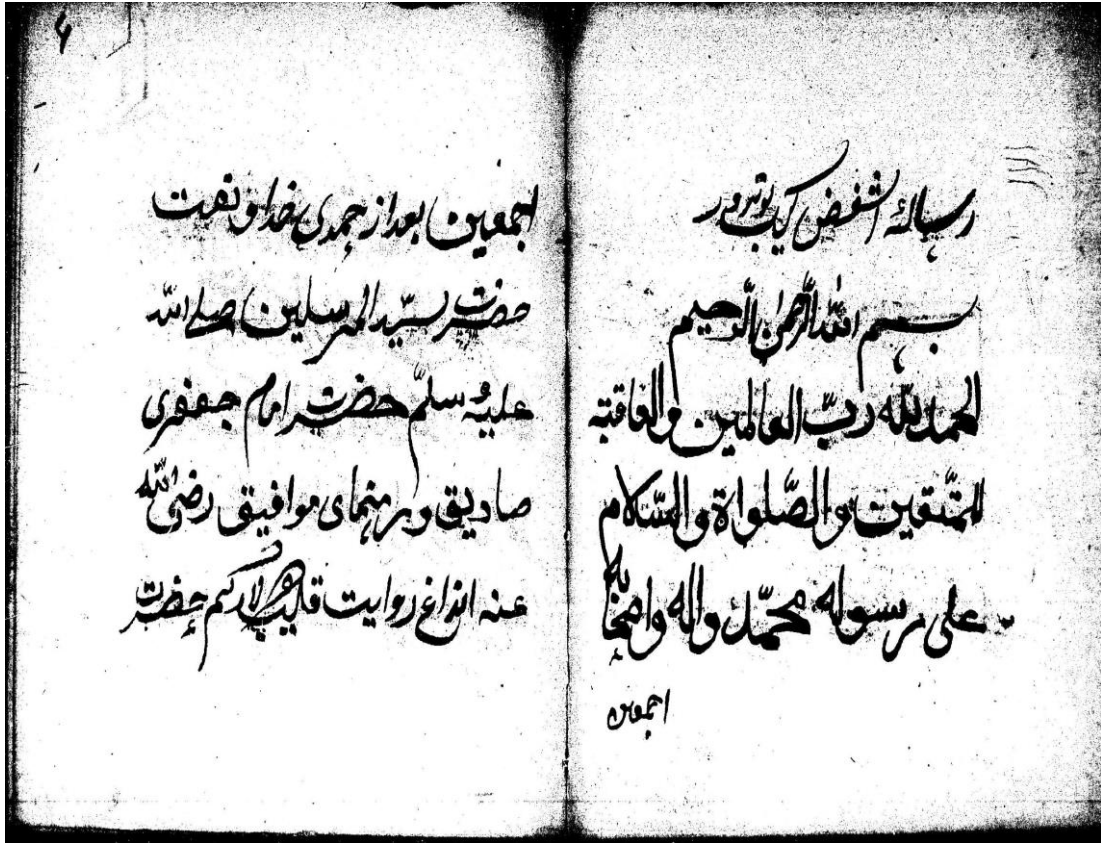 رسالهٔ
بسم الله الرحمن الرحيم
الحمد لله ربّ العالمين والعاقبة
للمتّقين والصّلواة والسّلام
على رسوله محمّد واله واصحابه
اجمعين
اجمعين بعد از حمدى خدا و نعت
حضرت سيّد المرسلين صلى الله
عليه سلّم حضرت امام جعفرى
صاديق و رهنماى موافيق رضى الله
عنه انداغ روايت قليب لار كم حضرت